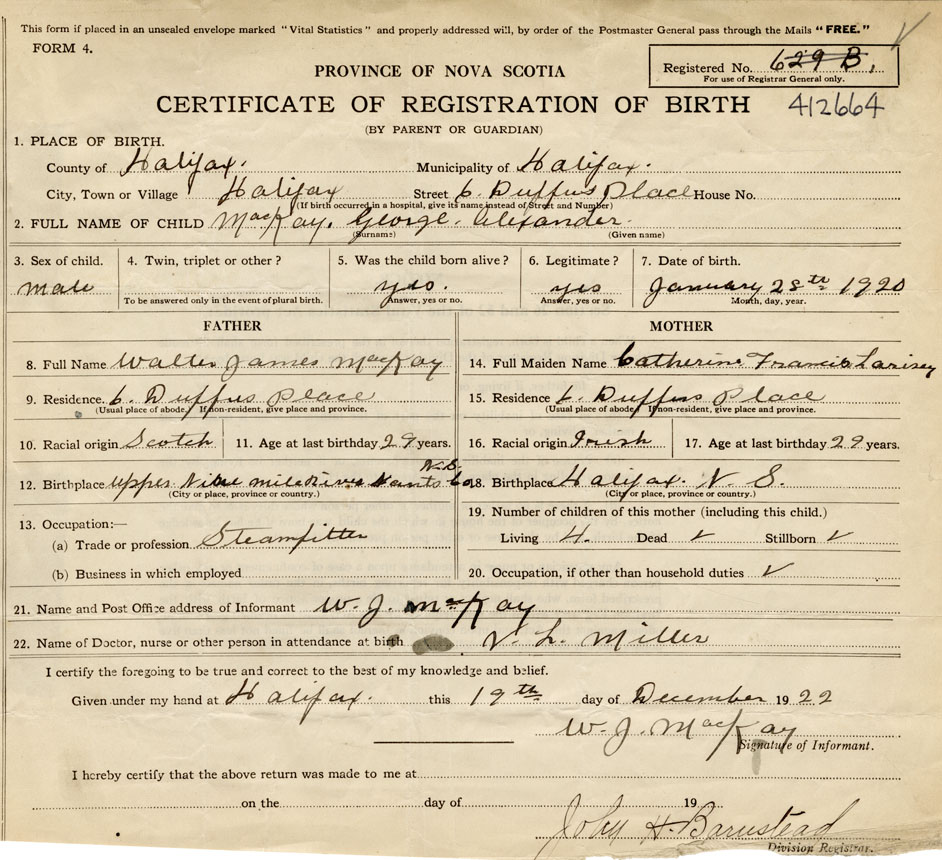 This form if placed in an unsealed envelope marked "Vital Statistics" and properly addressed will, by order of the Postmaster General pass through the Mails "FREE."
FORM 4.
Registered No. 629 B.
For use of Registrar General only.
PROVINCE OF NOVA SCOTIA
CERTIFICATE OF REGISTRATION OF BIRTH 412664
(BY PARENT OR GUARDIAN)
1. PLACE OF BIRTH.
County of Halifax. Municipality of Halifax.
City, Town or Village Halifax Street 6. Duffus Place House No.
(If birth occurred in a hospital, give its name instead of Street and Number)
2. FULL NAME OF CHILD MacKay. George. Alexander.
(Surname) (Given name)
3. Sex of child. 4. Twin, triplet or other? 5. Was the child born alive? 6. Legitimate? 7. Date of birth.
male yes. yes January 28th 1920
To be answered only in the event of plural birth. Answer, yes or no. Answer, yes or no. Month, day, year.
FATHER MOTHER
8. Full Name Walter James MacKay 14. Full Maiden Name Catherine Francis Larisey
9. Residence. 6. Duffus Place 15. Residence 6. Duffus Place
(Usual place of abode.) If non-resident, give place and province. (Usual place of abode.) If non-resident, give place and province.
10. Racial origin Scotch 11. Age at last birthday 29 years. 16. Racial origin Irish 17. Age at last birthday 29 years.
N.S.
12. Birthplace Upper Nine mile River Hants Co 18. Birthplace Halifax. N. S.
(City or place, province or country.) (City or place, province or country.)
13. Occupation:— 19. Number of children of this mother (including this child.)
(a) Trade or profession Steamfitter Living 4. Dead ✓ Stillborn ✓
(b) Business in which employed 20. Occupation, if other than household duties ✓
21. Name and Post Office address of Informant W. J. McKay
22. Name of Doctor, nurse or other person in attendance at birth L. Miller
I certify the foregoing to be true and correct to the best of my knowledge and belief.
Given under my hand at Halifax. this 19th day of December 1922
W. J. MacKay
Signature of Informant.
I hereby certify that the above return was made to me at
on the day of 19
John H. Barnstead
Division Registrar.